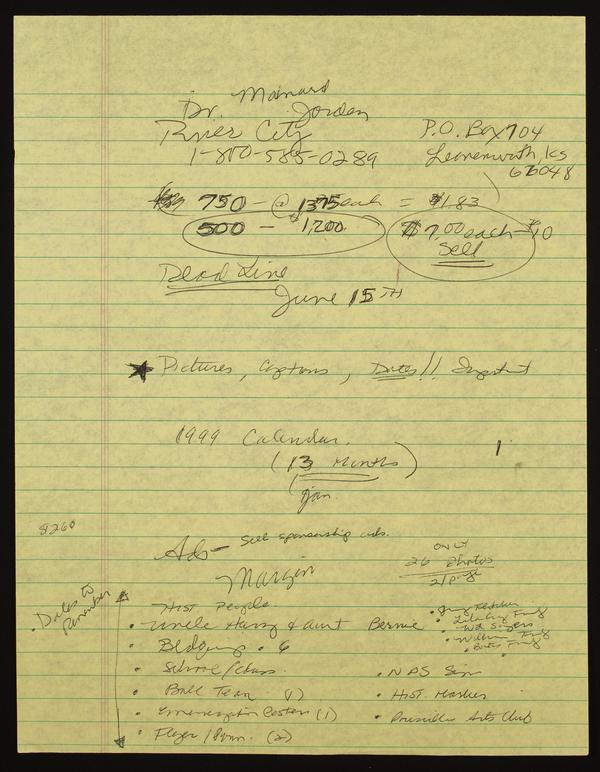 Dr. Mainard Jorden
River City
1-800-585-0289
P.O. Box 704
Leavenworth, KS
66048
750 - @ 1375 each = $1.83
500 - $1,200.
$7.00 each - $10
Sell
Dead Line
June 15TH
★ Pictures, Captions, Dates!! Important
1999 Calendar.
(13 Months)
Jan.
$260
Ads - Sell sponsorship ads.
Margin
ONLY
26 Photos
2/page
Dates to Remember
Hist. People
• Uncle Harry & Aunt Bernice
• Bldgings • 6
• School/Class.
• Ball Team (1)
• Emancipation (1)
• Flyer / (2)
• Family
• Family
• William Family
• Family
• NPS Sign
• Hist. Marker
• Arts Club